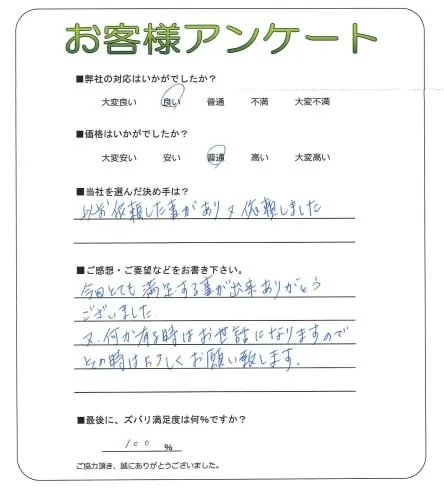 お客様アンケート
■弊社の対応はいかがでしたか?
大変良い 良い 普通 不満 大変不満
■価格はいかがでしたか?
大変安い 安い 普通 高い 大変高い
■当社を選んだ決め手は?
以前依頼した事があり又依頼しました
■ご感想・ご要望などをお書き下さい。
今回とても満足する事が出来ありがとう
ございました
又、何か有る時はお世話になりますので
その時はよろしくお願い致します.
■最後に、ズバリ満足度は何%ですか?
100 %
ご協力頂き、誠にありがとうございました。